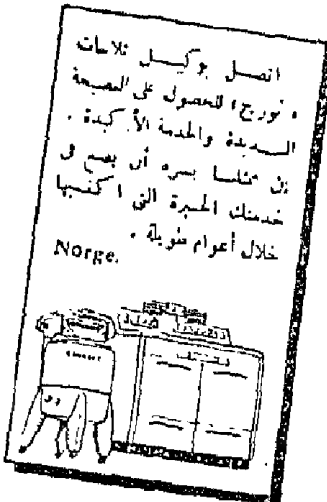 اتصل بوكيل ثلاجات
« نورج » للحصول على النصيحة
السديدة والخدمة الأكيدة .
إن ممثلنا يسره أن يضع في
خدمتك الخبرة التي اكتسبها
خلال أعوام طويلة .
Norge.